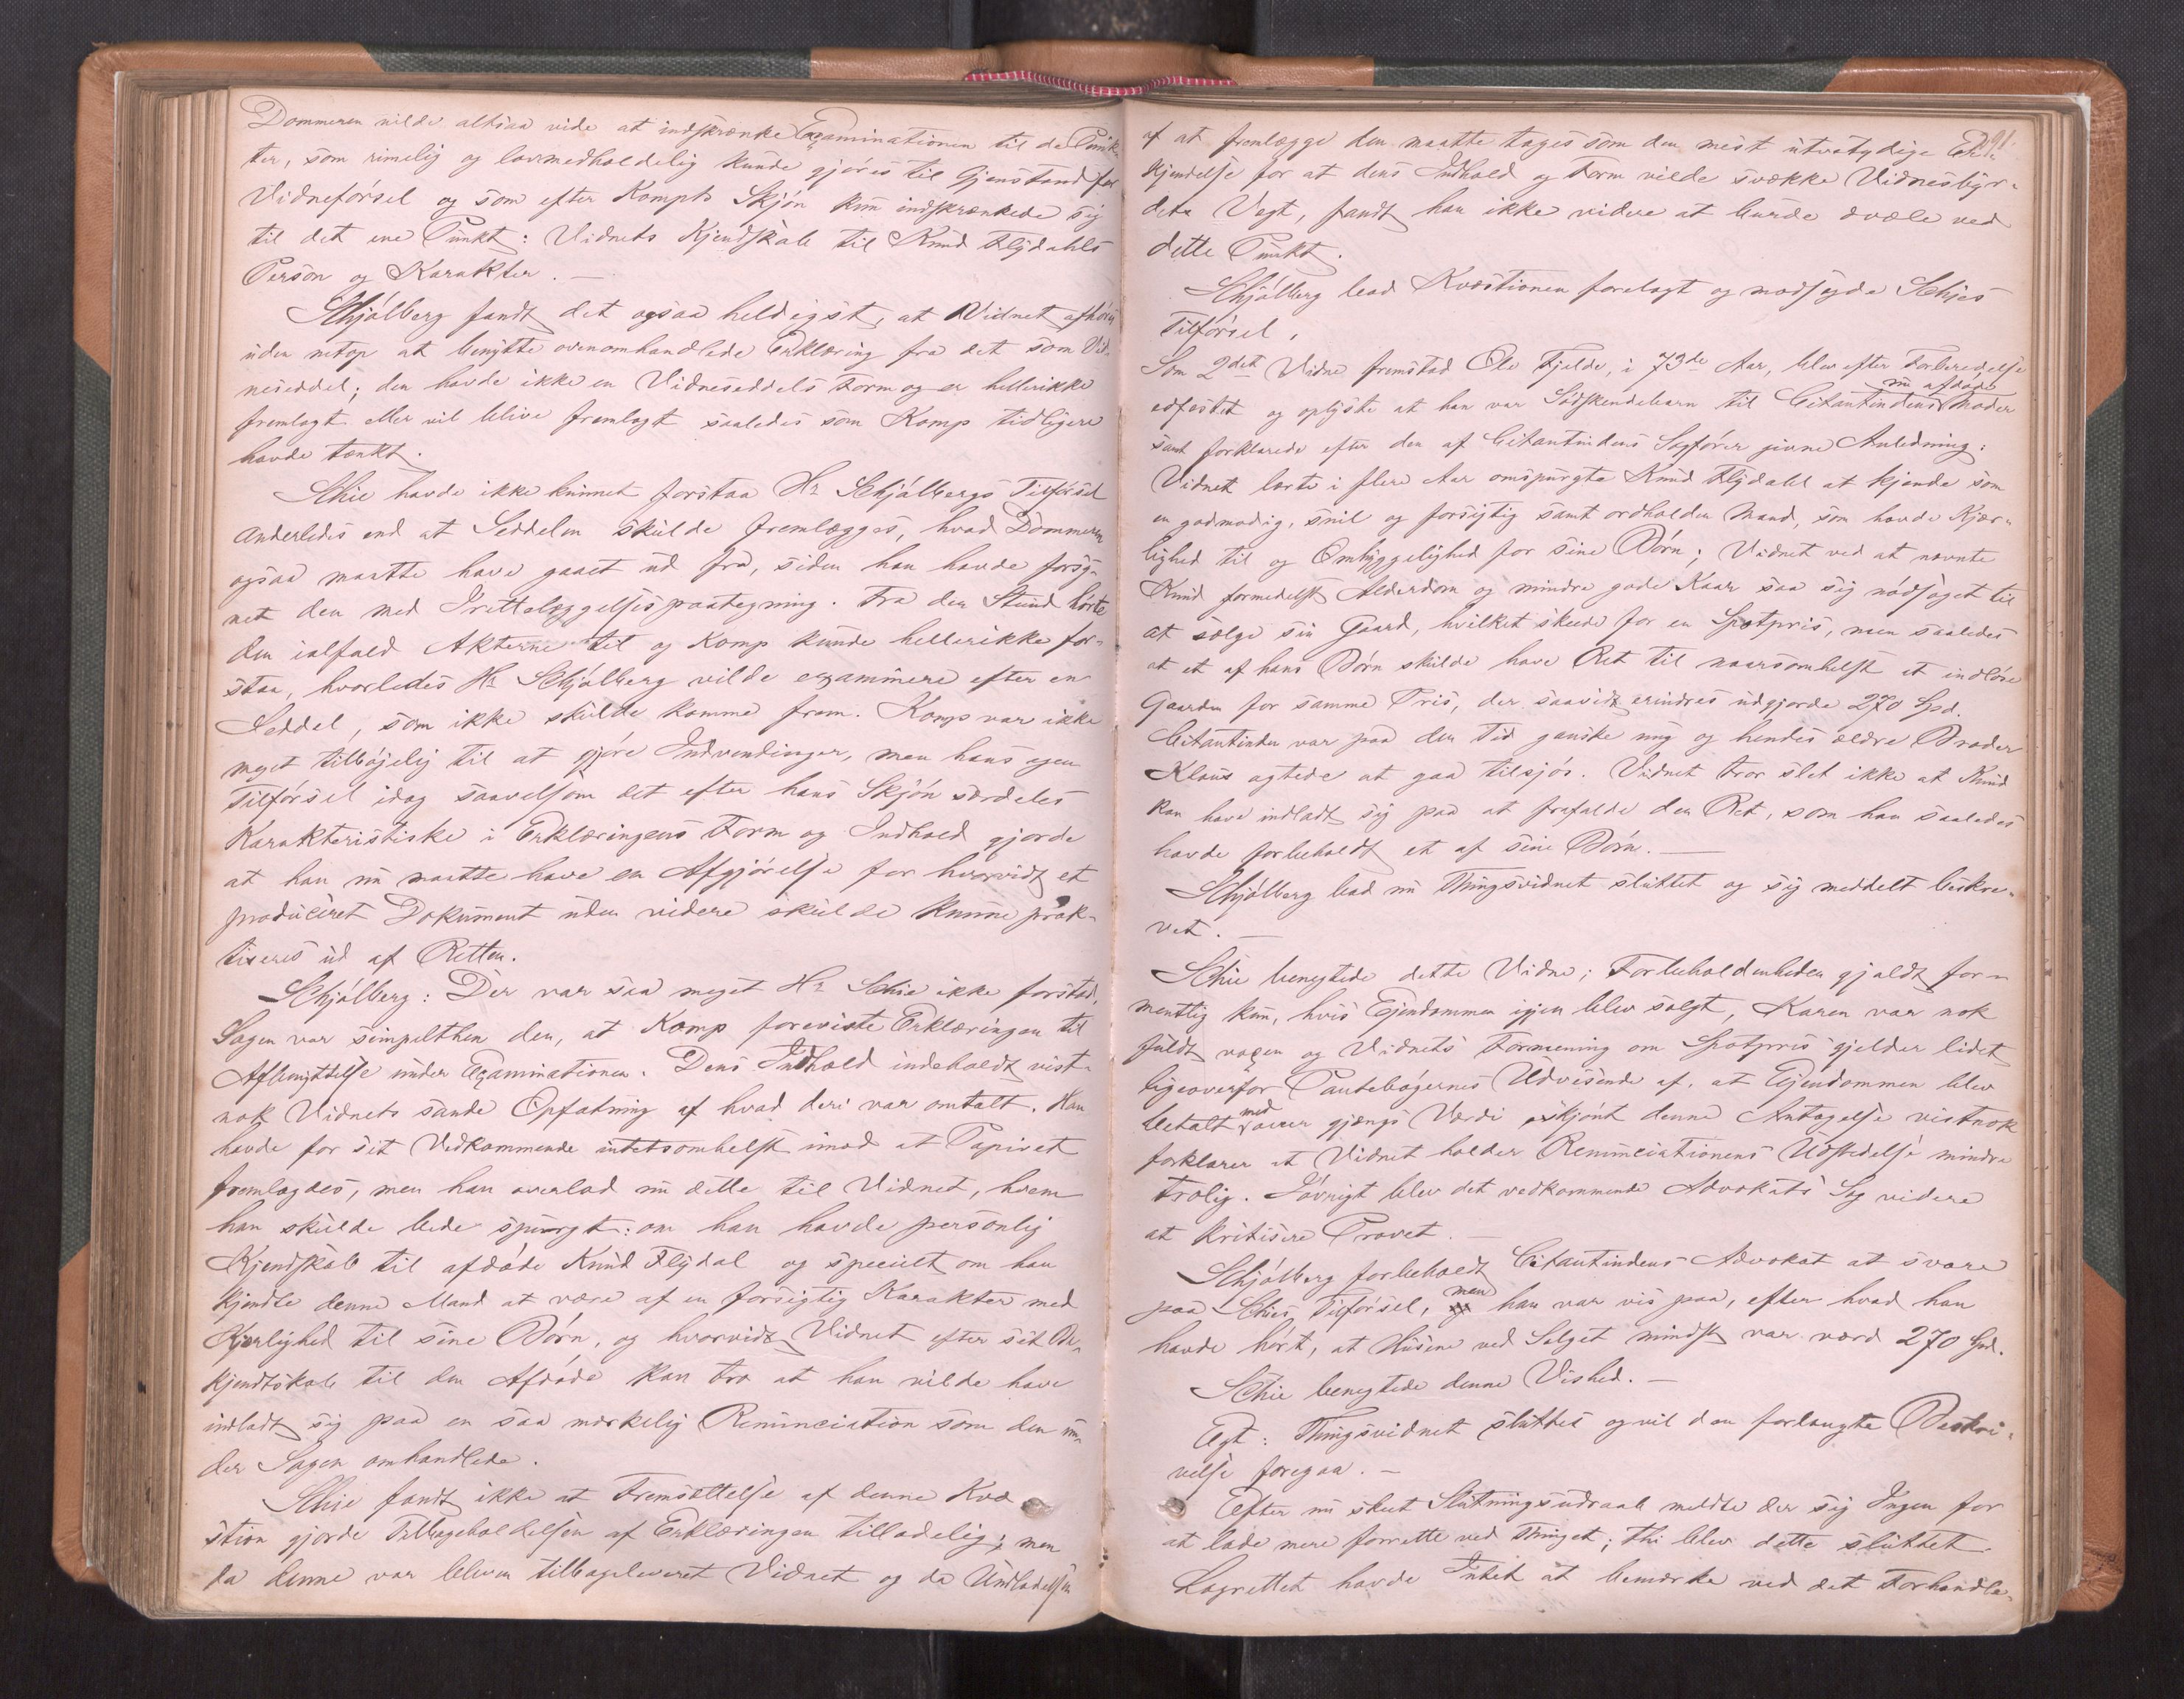 Dommeren vilde altsaa vide at indskrænke Examinationen til de Punk-
ter, som rimelig og lovmedholdelig kunde gjøres til Gjenstand for
Vidneførsel og som efter Kompts Skjøn kun indskrænkede sig
til det ene Punkt: Vidnets Kjendskab til Knud Flydahls
Person og Karakter. —
Schjølberg fandt det ogsaa heldigst, at Vidnet afhøres
uden netop at benytte ovenomhandlede Erklæring fra det som Vid-
neseddel; den havde ikke en Vidneseddels Form og er hellerikke
fremlagt eller vil blive fremlagt saaledes som Komp tidligere
havde tænkt.
Schie havde ikke kunnet forstaa Hr Schjølbergs Tilførsel
anderledes end at Seddelen skulde fremlægges, hvad Dommeren
ogsaa maatte have gaaet ud fra, siden han havde forsy-
net den med Irettelæggelsespaategning. Fra den Stund hørte
den ialfald Akterne til og Komp kunde hellerikke for-
staa, hvorledes Hr Schjølberg vilde examinere efter en
Seddel, som ikke skulde komme frem. Komp var ikke
meget tilbøjelig til at gjøre Indvendinger, men hans egen
Tilførsel idag saavelsom det efter hans Skjøn særdeles
Karakteristiske i Erklæringens Form og Indhold gjorde
at han nu maatte have en Afgjørelse for hvorvidt et
produceret Dokument uden videre skulde kunne prak-
tiseres ud af Retten.
Schjølberg: Der var saa meget Hr Schie ikke forstod,
Sagen var simpelthen den, at Komp foreviste Erklæringen til
Afbenyttelse under Examinationen. Dens Indhold indeholdt vist-
nok Vidnets sande Opfatning af hvad deri var omtalt. Han
havde for sit Vedkommende intetsomhelst imod at Papiret
fremlægdes, men han overlod nu dette til Vidnet, hvem
han skulde bede spurgt: om han havde personlig
Kjendskab til afdøde Knud Flydal og specielt om han
kjendte denne Mand at være af en forsigtig Karakter med
Kjærlighed til sine Børn, og hvorvidt Vidnet efter sit Be-
kjendtskab til den Afdøde kan tro at han vilde have
indladt sig paa en saa mærkelig Renunciation som den un-
der Sagen omhandlede.
Schie fandt ikke at Fremsættelse af denne Kvæ
stion gjorde Tilbageholdelsen af Erklæringen tilladelig; men
da denne var bleven tilbageleveret Vidnet og da Undladelsen
91
af at fremlægge den maatte tages som den mest utvetydige Er-
kjendelse for at dens Indhold og Form vilde svække Vidnesbyr-
dets Vægt, fandt han ikke videre at burde dvæle ved
dette Punkt.
Schjølberg bad Kvæstionen forelagt og modsagde Schies
Tilførsel.
Som 2det Vidne fremstod Ole Fjelde, i 73de Aar, blev efter Forberedelse
edfæstet og oplyste at han var Sødskendebarn til Citantindens nu afdøde Moder
samt forklarede efter den af Citantindens Sagfører givne Anledning:
Vidnet lærte i flere Aar omspurgte Knud Flydahl at kjende som
en godmodig, snil og forsigtig samt ordholden Mand, som havde Kjær-
lighed til og Omhyggelighed for sine Børn; Vidnet ved at nævnte
Knud formedelst Alderdom og mindre gode Kaar saa sig nødsaget til
at sælge sin Gaard, hvilket skede for en Spotpris, men saaledes
at et af hans Børn skulde have Ret til naarsomhelst at indløse
Gaarden for samme Pris, der saavidt erindres udgjorde 270 Spd.
Citantinden var paa den Tid ganske ung og hendes ældre Broder
Klaus agtede at gaa tilsjøs. Vidnet tror slet ikke at Knud
kan have indladt sig paa at frafalde den Ret, som han saaledes
havde forbeholdt et af sine Børn. —
Schjølberg bad nu Thingsvidnet sluttet og sig meddelt beskre-
vet. —
Schie benegtede dette Vidne; Forbeholdenheden gjaldt for-
mentlig kun, hvis Ejendommen igjen blev solgt, Karen var nok
fuldt voxen og Vidnets Formening om Spotpris gjelder lidet
ligeoverfor Pantebøgernes Udvisende af, at Ejendommen blev
betalt med over gjængs Værdi øskjønt denne Antagelse vistnok
forklarer at Vidnet holder Renunciationens Udstedelse mindre
trolig. Iøvrigt blev det vedkommende Advokats Sag videre
at kritisere Provet. —
Schjølberg forbeholdt Citantindens Advokat at svare
paa Schies Tilførsel, men han var vis paa, efter hvad han
havde hørt, at Husene ved Salget mindst var værd 270 Spd.
Schie benegtede denne Vished. —
Egt: Thingsvidnet sluttes og vil den forlangte Beskri-
velse foregaa. —
Efter nu skeet Slutningsudraab meldte der sig Ingen for
at lade mere forrette ved Thinget; thi blev dette sluttet.
Lagrettet havde Intet at bemærke ved det Forhandle-